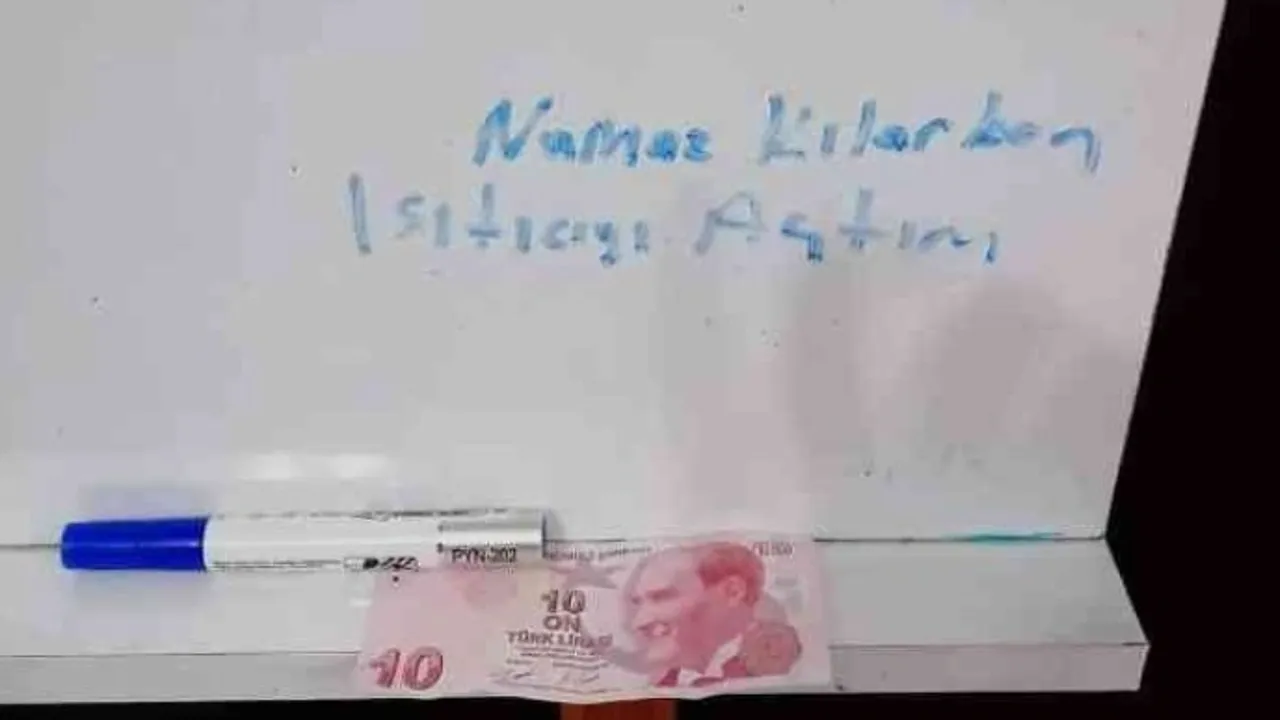 Namaz Kılarken
Isıtıcıyı Açtım
PYN-202
10
ON
TÜRK LİRASI
10